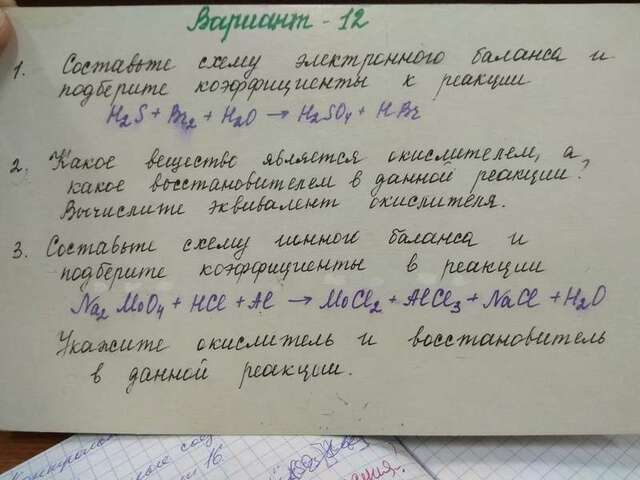 Вариант - 12
1. Составьте схему электронного баланса и
подберите коэффициенты к реакции
H₂S + Br₂ + H₂O → H₂SO₄ + HBr
2. Какое вещество является окислителем, а
какое восстановителем в данной реакции?
Вычислите эквивалент окислителя.
3. Составьте схему ионного баланса и
подберите коэффициенты в реакции
Na₂MoO₄ + HCl + Al → MoCl₂ + AlCl₃ + NaCl + H₂O
Укажите окислитель и восстановитель
в данной реакции.
16